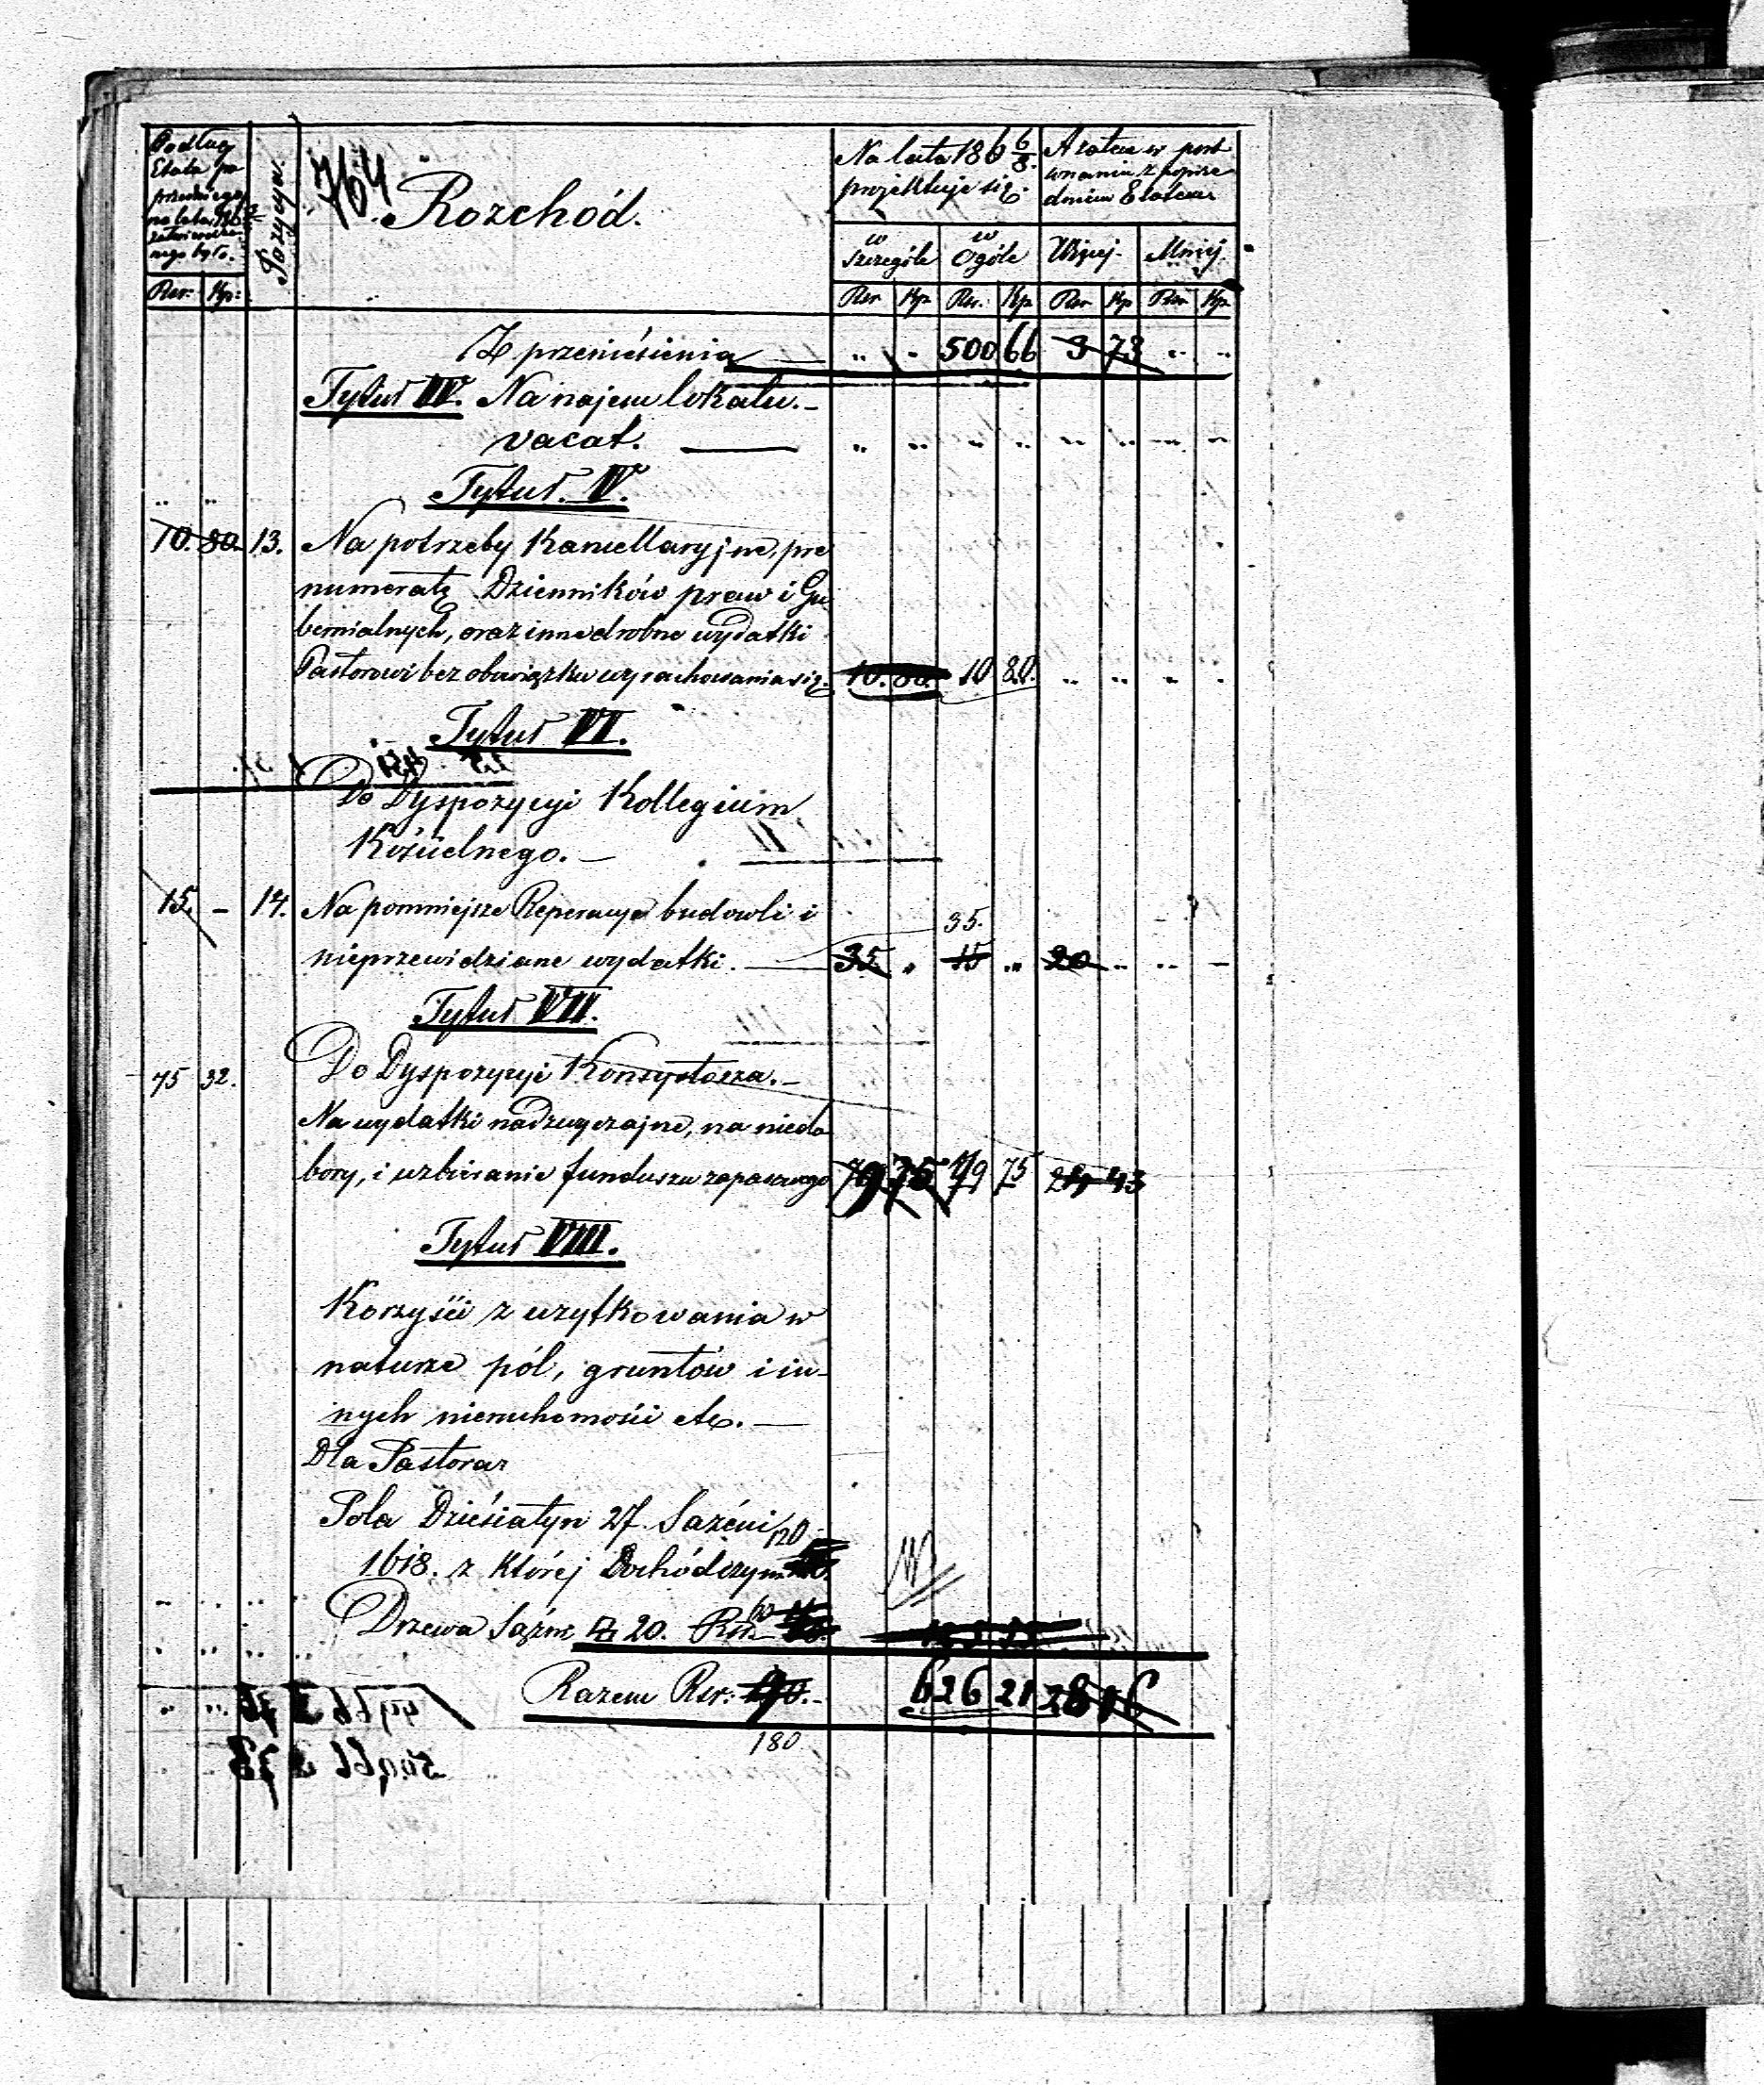 Podług
Etatu po
przedniego
na lata
zatwierdzo
nego było.
Pozycya.
764
Rozchód.
Na lata 186 6/8.
projektuje się.
A zatem w poró
wnaniu z poprze
dnim Etatem
w
szczególe
w
Ogóle
Więcej.
Mniej.
Rsr. Kp: Rsr Kp Rsr. Kp Rsr Kp Rsr Kp
Z przeniesienia 500 66 3 73
Tytuł IV. Na najem lokalu.
vacat.
Tytuł. V.
10. 80. 13. Na potrzeby Kancellaryjne, pre
numeratę Dzienników praw i Gu
bernialnych, oraz inne drobne wydatki
Pastorowi bez obowiązku wyrachowania się. 10. 80. 10 80.
Tytuł VI.
Do Dyspozycyi Kollegium
Kościelnego.
15. – 14. Na pomniejsze Reperacye budowli i
35.
nieprzewidziane wydatki. 35 „ 15 „ 20
Tytuł VII.
75 32. Do Dyspozycyi Konsystorza.
Na wydatki nadzwyczajne, na niedo
bory, i uzbieranie funduszu zapasowego 79 75 79 75 24 43
Tytuł VIII.
Korzyści z użytkowania w
naturze pól, gruntów i in-
nych nieruchomości etc.
Dla Pastora
Pola Dziesiatyn 27. Sażeni
120
1618. z której Dochód czyni
60
Drzewa Sążni 20. Rsr.
Razem Rsr: 190. 626 21 28 16
180